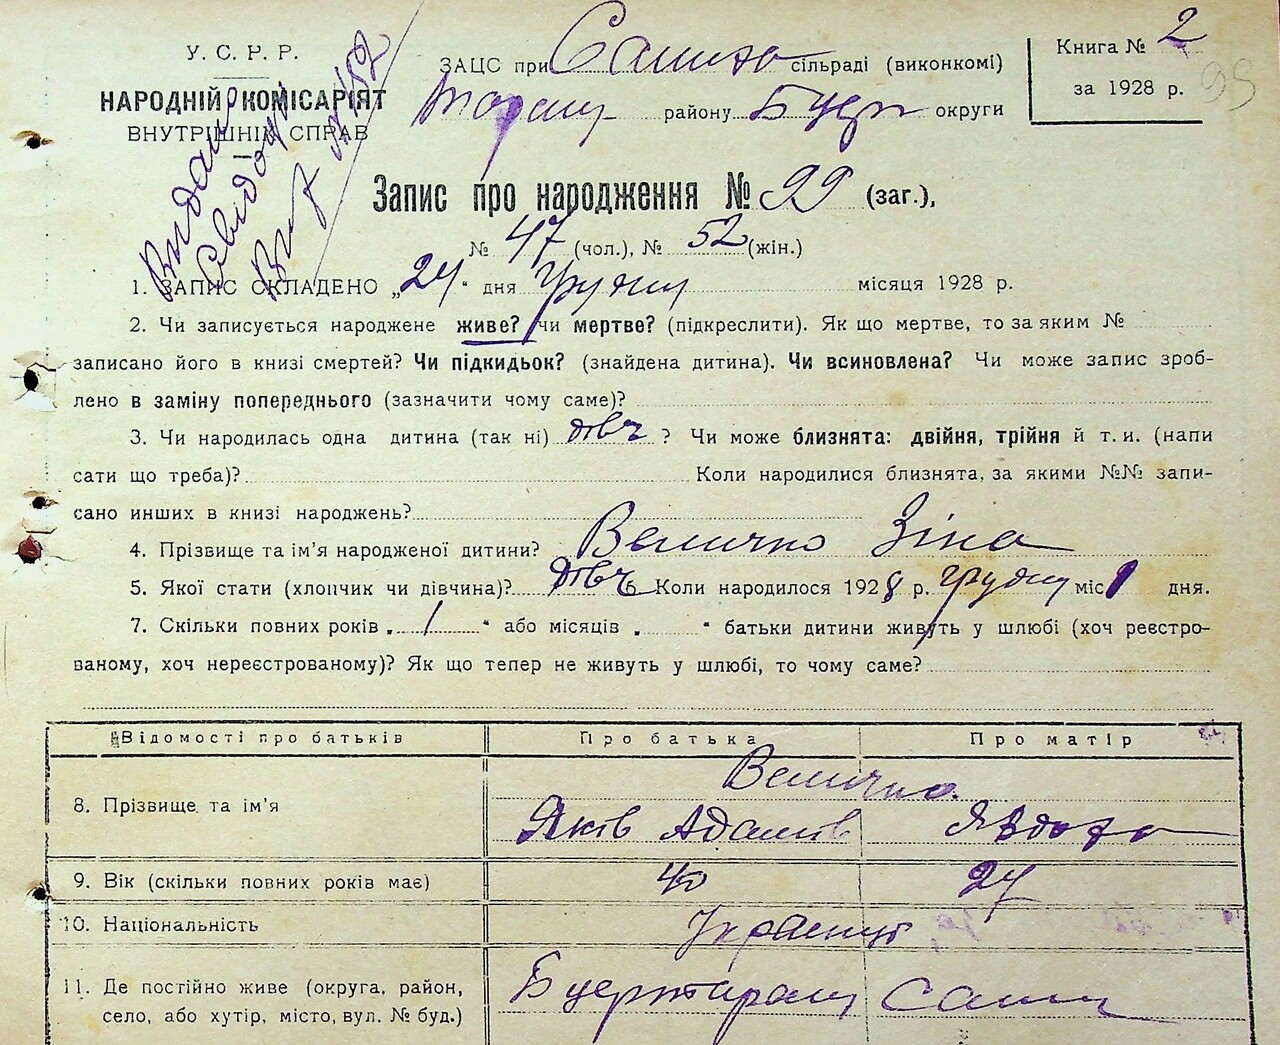 У. С. Р. Р.
НАРОДНІЙ КОМІСАРІЯТ
ВНУТРІШНІХ СПРАВ
Видано
ЗАЦС при сільраді (виконкомі)
району округи
Книга № 2
за 1928 р.
99
Запис про народження № 99 (заг.),
№ 47 (чол.), № 52 (жін.)
1. ЗАПИС СКЛАДЕНО „24“ дня Грудня місяця 1928 р.
2. Чи записується народжене живе? чи мертве? (підкреслити). Як що мертве, то за яким №
записано його в книзі смертей? Чи підкидьок? (знайдена дитина). Чи всиновлена? Чи може запис зроб-
лено в заміну попереднього (зазначити чому саме)?
3. Чи народилась одна дитина (так ні) ? Чи може близнята: двійня, трійня й т. и. (напи
сати що треба)? Коли народилися близнята, за якими №№ запи-
сано инших в книзі народжень?
4. Прізвище та ім'я народженої дитини? Величко Зіна
5. Якої стати (хлопчик чи дівчина)? дівч 6 Коли народилося 1928 р. грудня міс 1 дня.
7. Скільки повних років „ 1 “ або місяців „ “ батьки дитини живуть у шлюбі (хоч реєстро-
ваному, хоч нереєстрованому)? Як що тепер не живуть у шлюбі, то чому саме?
Відомості про батьків Про батька Про матір
Величко
8. Прізвище та ім'я Яків Адамів Явдоха
9. Вік (скільки повних років має) 40 27
10. Національність Українці
11. Де постійно живе (округа, район,
село, або хутір, місто, вул. № буд.)